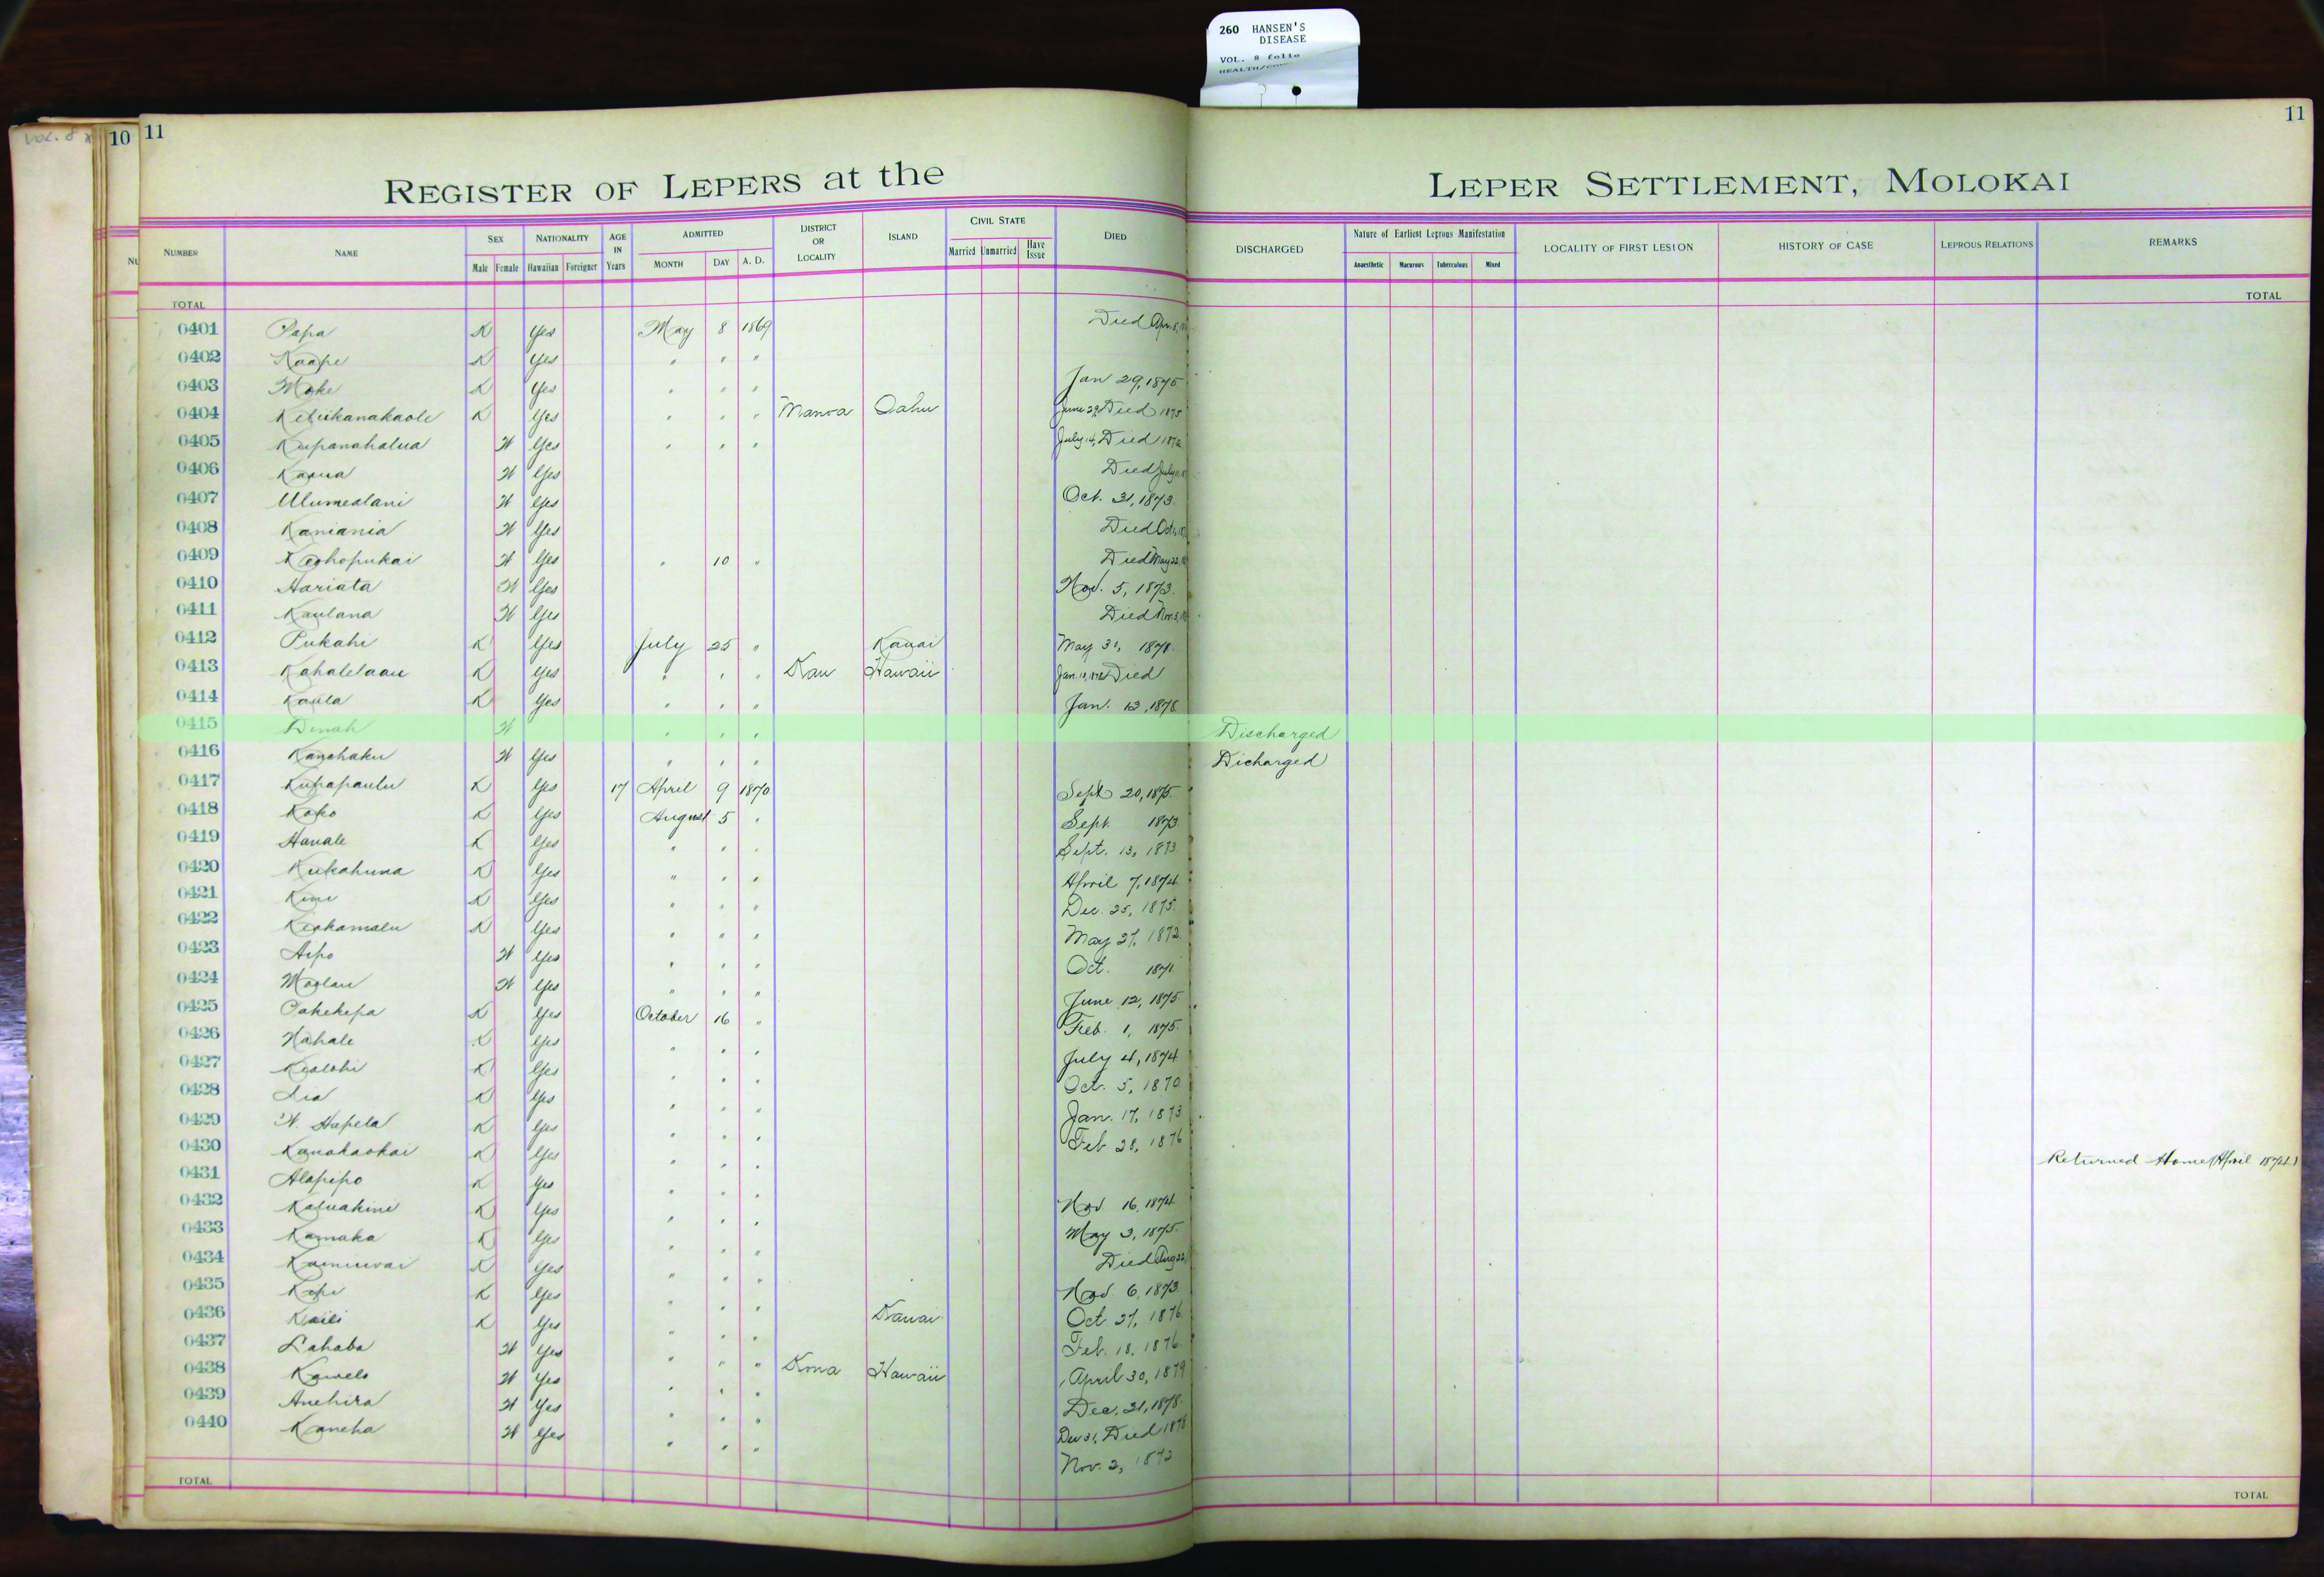 260 HANSEN'S
DISEASE
VOL. 8 folio
VOL. 8
10 11
11
REGISTER OF LEPERS at the LEPER SETTLEMENT, MOLOKAI
NUMBER NAME SEX Male Female NATIONALITY Hawaiian Foreigner AGE IN Years ADMITTED MONTH DAY A. D. DISTRICT OR LOCALITY ISLAND CIVIL STATE Married Unmarried Have Issue DIED DISCHARGED Nature of Earliest Leprous Manifestation Anaesthetic Macurous Tuberculous Mixed LOCALITY OF FIRST LESION HISTORY OF CASE LEPROUS RELATIONS REMARKS
TOTAL TOTAL
0401 Papa K Yes May 8 1869 Died Apr. 8,
0402 Kaape K Yes " " "
0403 Moke K Yes " " " Jan 29, 1875
0404 Keliikanakaole K Yes " " " Manoa Oahu June 29, Died 1875
0405 Kupanahalua W Yes " " " July 14, Died 1872
0406 W Yes Died July
0407 Ulumealani W Yes Oct. 31, 1873.
0408 Kaniania W Yes Died Oct
0409 Keohopukai W Yes " 10 " Died May 22,
0410 Hariata W Yes Nov. 5, 1873.
0411 Kaulana W Yes Died Nov. 3,
0412 Pukahi K Yes July 25 " Kauai May 31, 1871.
0413 Kahalelaau K Yes " " " Kau Hawaii Jan. Died
0414 Kaula K Yes " " " Jan. 12, 1878.
0415 Dinah W " " " Discharged
0416 Kanohaku W Yes " " " Dicharged
0417 Kupapaulu K Yes 17 April 9 1870 Sept 20, 1875.
0418 Koko K Yes August 5 " Sept. 1873
0419 Hanale K Yes " " " Sept. 13, 1873
0420 Kukahuna K Yes " " " April 7, 1874
0421 Kimi K Yes " " " Dec. 25, 1875.
0422 Keokamalu K Yes " " " May 27, 1872.
0423 Aipo W Yes " " " Oct. 1871
0424 Moolau W Yes " " " June 12, 1875
0425 Pakekepa K Yes October 16 " Feb. 1, 1875.
0426 Nahale K Yes " " " July 4, 1874
0427 Kealohi K Yes " " " Oct. 5, 1870
0428 Lia K Yes " " " Jan. 17, 1873
0429 W. Hapela K Yes " " " Feb 28, 1876
0430 Kanakaokai K Yes " " " Returned Home (April 1874.)
0431 Alapipo K Yes " " " Nov 16, 1874
0432 Kaluakini K Yes " " " May 3, 1875.
0433 Kamaka K Yes " " " Died Aug 22,
0434 K Yes " " " Nov 6, 1873
0435 Kopi K Yes " " " Kauai Oct. 27, 1876.
0436 Kaili K Yes " " " Feb. 18, 1876.
0437 Lahaba W Yes " " " Kona Hawaii April 30, 1879
0438 Kawelo W Yes " " " Dec. 31, 1878.
0439 Anehira W Yes " " " Dec 31, Died 1878
0440 Kaneha W Yes " " " Nov. 2, 1872
TOTAL TOTAL